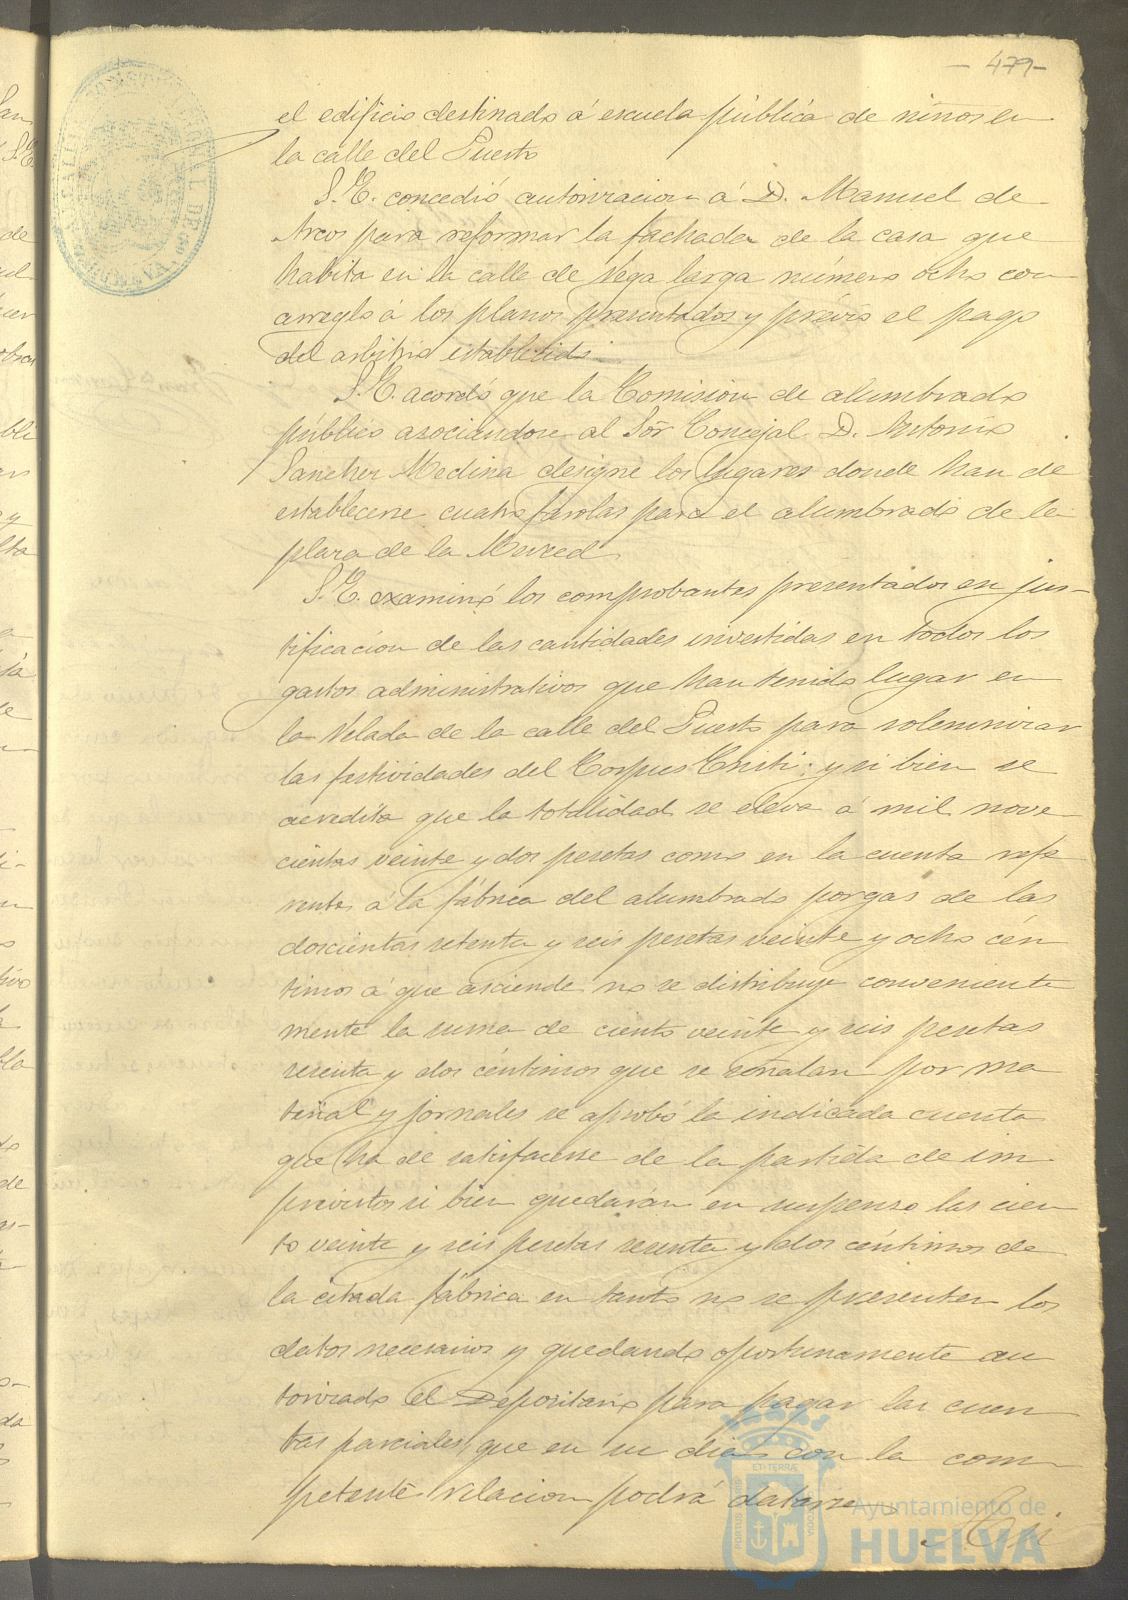 - 479 -
el edificio destinado á escuela pública de niños en
la calle del Puerto
S. E. concedió autorizacion á D. Manuel de
Arcos para reformar la fachada de la casa que
habita en la calle de Vega larga número ocho con
arreglo á los planos presentados y prévio el pago
del arbitrio establecido.
S. E. acordó que la Comision de alumbrado
público asociandose al Sor Concejal D. Antonio
Sanchez Medina designe los lugares donde han de
establecerse cuatro farolas para el alumbrado de la
plaza de la Merced
S. E. examinó los comprobantes presentados en jus-
tificacion de las cantidades invertidas en todos los
gastos administrativos que han tenido lugar en
la Velada de la calle del Puerto para solemnizar
las festividades del Corpus Cristi; y si bien se
acredita que la totalidad se eleva á mil nove
cientas veinte y dos pesetas como en la cuenta refe
rente á la fábrica del alumbrado por gas de las
doscientas setenta y seis pesetas veinte y ocho cén
timos á que asciende no se distribuye conveniente
mente la suma de ciento veinte y seis pesetas
sesenta y dos céntimos que se señalan por ma
terial y jornales se aprobó la indicada cuenta
que ha de satisfacerse de la partida de im
previstos si bien quedarán en suspenso las cien
to veinte y seis pesetas sesenta y dos céntimos de
la citada fábrica en tanto no se presenten los
datos necesarios y quedando oportunamente au
torizado el Depositario para pagar las cuen
tas parciales que en su dia con la com
petente relacion podrá datarse
Ayuntamiento de
HUELVA